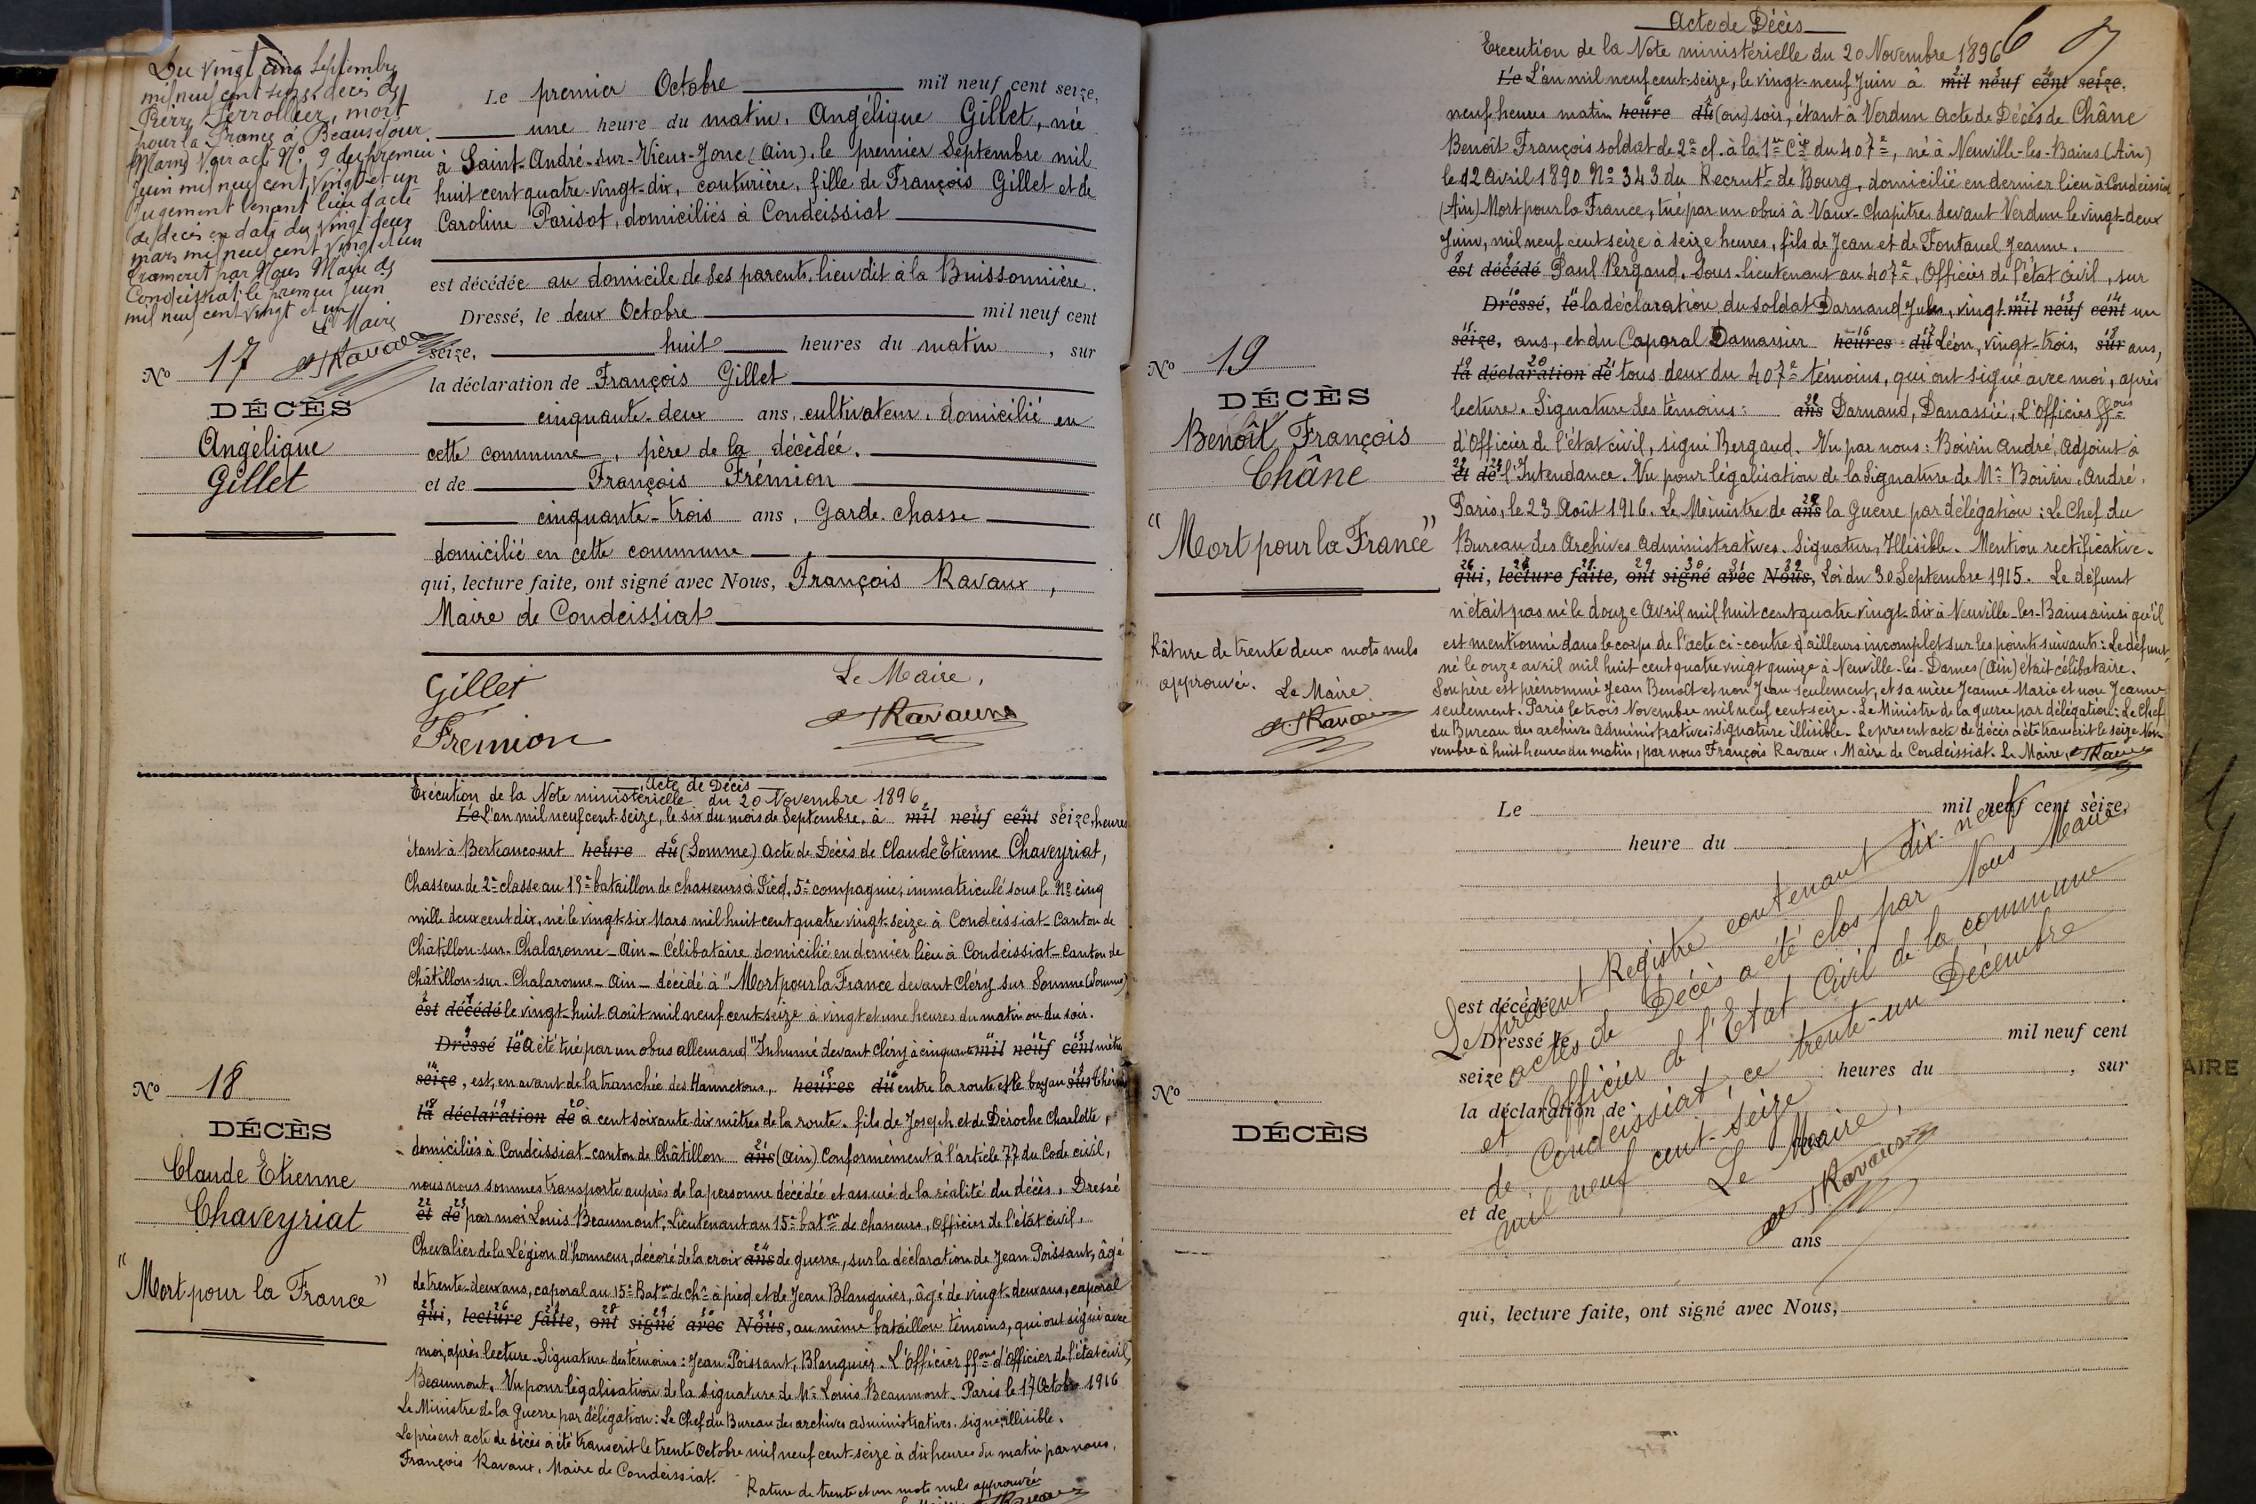 Du vingt cinq Septembre
mil neuf cent seize décès de
Pierre Perrollier, mort
pour la France à Beauséjour
Marne Voir acte N° 9 du premier
Juin mil neuf cent vingt et un
Jugement tenant lieu d'acte
de décès en date du vingt deux
mars mil neuf cent vingt et un
transcrit par Nous Maire de
Condeissiat, le premier Juin
mil neuf cent vingt et un
Le Maire
Ravaux
N° 17
DÉCÈS
Angélique
Gillet
Le premier Octobre mil neuf cent seize,
une heure du matin, Angélique Gillet, née
à Saint-André-sur-Vieux-Jonc (Ain), le premier Septembre mil
huit cent quatre-vingt-dix, couturière, fille de François Gillet et de
Caroline Parisot, domiciliés à Condeissiat
est décédée au domicile de ses parents, lieu dit à la Buissonnière.
Dressé, le deux Octobre mil neuf cent
seize, huit heures du matin, sur
la déclaration de François Gillet
cinquante-deux ans, cultivateur, domicilié en
cette commune, père de la décédée.
et de François Frémion
cinquante-trois ans, Garde-chasse
domicilié en cette commune,
qui, lecture faite, ont signé avec Nous, François Ravaux,
Maire de Condeissiat
Gillet
Le Maire,
Ravaux
Fremion
N° 18
DÉCÈS
Claude Etienne
Chaveyriat
"Mort pour la France"
Acte de Décès
Execution de la Note ministérielle du 20 Novembre 1896
Le L'an mil neuf cent seize, le six du mois de Septembre, à mil neuf cent seize, heures
étant à Berteaucourt heure du (Somme) Acte de Décès de Claude Etienne Chaveyriat,
Chasseur de 2e classe au 15e bataillon de chasseurs à Pied, 5e compagnie, immatriculé sous le N° cinq
mille deux cent dix, né le vingt-six Mars mil huit cent quatre vingt-seize à Condeissiat - Canton de
Châtillon-sur-Chalaronne - Ain - Célibataire domicilié en dernier lieu à Condeissiat - Canton de
Châtillon-sur-Chalaronne - Ain - décédé à "Mort pour la France devant Cléry sur Somme (Somme)
est décédé le vingt-huit Août mil neuf cent seize à vingt et une heures du matin ou du soir.
Dressé le a été tué par un obus allemand "Inhumé devant Cléry à cinquante mil neuf cent mètres
seize, est, en avant de la tranchée des Hannetons, heures du entre la route et le boyau sur
la déclaration de à cent soixante dix mètres de la route. fils de Joseph et de Déroche Charlotte,
domiciliés à Condeissiat - canton de Châtillon ans (Ain) Conformément à l'article 77 du Code civil,
nous nous sommes transporté auprès de la personne décédée et assuré de la réalité du décès. Dressé
et de par moi Louis Beaumont, Lieutenant au 15e baton de chasseurs, Officier de l'état civil,
Chevalier de la Légion d'honneur, décoré de la croix ans de guerre, sur la déclaration de Jean Poissant, âgé
de trente-deux ans, caporal au 15e Baton de chrs à pied et de Jean Blanguier, âgé de vingt-deux ans, caporal
qui, lecture faite, ont signé avec Nous, au même bataillon témoins, qui ont signé avec
moi, après lecture. Signature des témoins : Jean Poissant, Blanguier. L'Officier ffons d'Officier de l'état civil,
Beaumont. Vu pour légalisation de la signature de Mr Louis Beaumont. Paris le 17 Octobre 1916
Le Ministre de la Guerre par délégation : Le Chef du Bureau des archives administratives. signé illisible.
Le présent acte de décès a été transcrit le trente Octobre mil neuf cent-seize à dix heures du matin par nous,
François Ravaux, Maire de Condeissiat.
Rature de trente et un mots nuls approuvée
Ravaux
N° 19
DÉCÈS
Benoît François
Châne
"Mort pour la France"
Râture de trente deux mots nuls
approuvée. Le Maire
Ravaux
6
Acte de Décès
Execution de la Note ministérielle du 20 Novembre 1896
Le L'an mil neuf cent-seize, le vingt-neuf Juin à mil neuf cent seize.
neuf heures matin heure du (ou) soir, étant à Verdun acte de Décès de Châne
Benoît François soldat de 2e cl. à la 1ere Cie du 407e, né à Neuville-les-Bains (Ain)
le 12 Avril 1890 N° 343 du Recrutt de Bourg, domicilié en dernier lieu à Condeissiat
(Ain) Mort pour la France, tué par un obus à Vaux-Chapitre devant Verdun le vingt-deux
Juin, mil neuf cent seize à seize heures, fils de Jean et de Fontanel Jeanne.
est décédé Paul Pergaud, Sous-lieutenant au 407e, Officier de l'état civil, sur
Dressé, le la déclaration du soldat Darnaud Jules, vingt mil neuf cent un
seize, ans, et du Caporal Damassier heures du Léon, vingt-trois, sur ans,
la déclaration de tous deux du 407e témoins, qui ont signé avec moi, après
lecture. Signature des témoins : ans Darnaud, Danassié, L'Officier ffons
d'Officier de l'état civil, signé Bergaud. Vu par nous : Boivin André, Adjoint à
et de l'Intendance. Vu pour légalisation de la Signature de Mr Boivin André.
Paris, le 23 Août 1916. Le Ministre de ans la Guerre par délégation : Le Chef du
Bureau des Archives Administratives. Signature Illisible. Mention rectificative.
qui, lecture faite, ont signé avec Nous, Loi du 30 Septembre 1915. Le défunt
n'était pas né le douze Avril mil huit cent quatre vingt-dix à Neuville-les-Bains ainsi qu'il
est mentionné dans le corps de l'acte ci-contre d'ailleurs incomplet sur les points suivants : Le défunt,
né le onze avril mil huit cent quatre vingt quinze à Neuville-les-Dames (Ain) était célibataire.
Son père est prénommé Jean Benoît et non Jean seulement, et sa mère Jeanne Marie et non Jeanne
seulement. Paris le trois Novembre mil neuf cent seize. Le Ministre de la guerre par délégation : Le Chef
du Bureau des archives administratives : signature illisible. Le présent acte de décès a été transcrit le seize Nov-
vembre à huit heures du matin, par nous François Ravaux, Maire de Condeissiat. Le Maire, Ravaux
N°
DÉCÈS
Le mil neuf cent seize,
heure du
est décédé
Dressé le mil neuf cent
seize, heures du , sur
la déclaration de
ans
et de
ans
qui, lecture faite, ont signé avec Nous,
Le présent Registre contenant dix-neuf
actes de Décès a été clos par Nous Maire
et Officier de l'Etat Civil de la commune
de Condeissiat, ce trente-un Décembre
mil neuf cent-seize
Le Maire,
Ravaux
AIRE